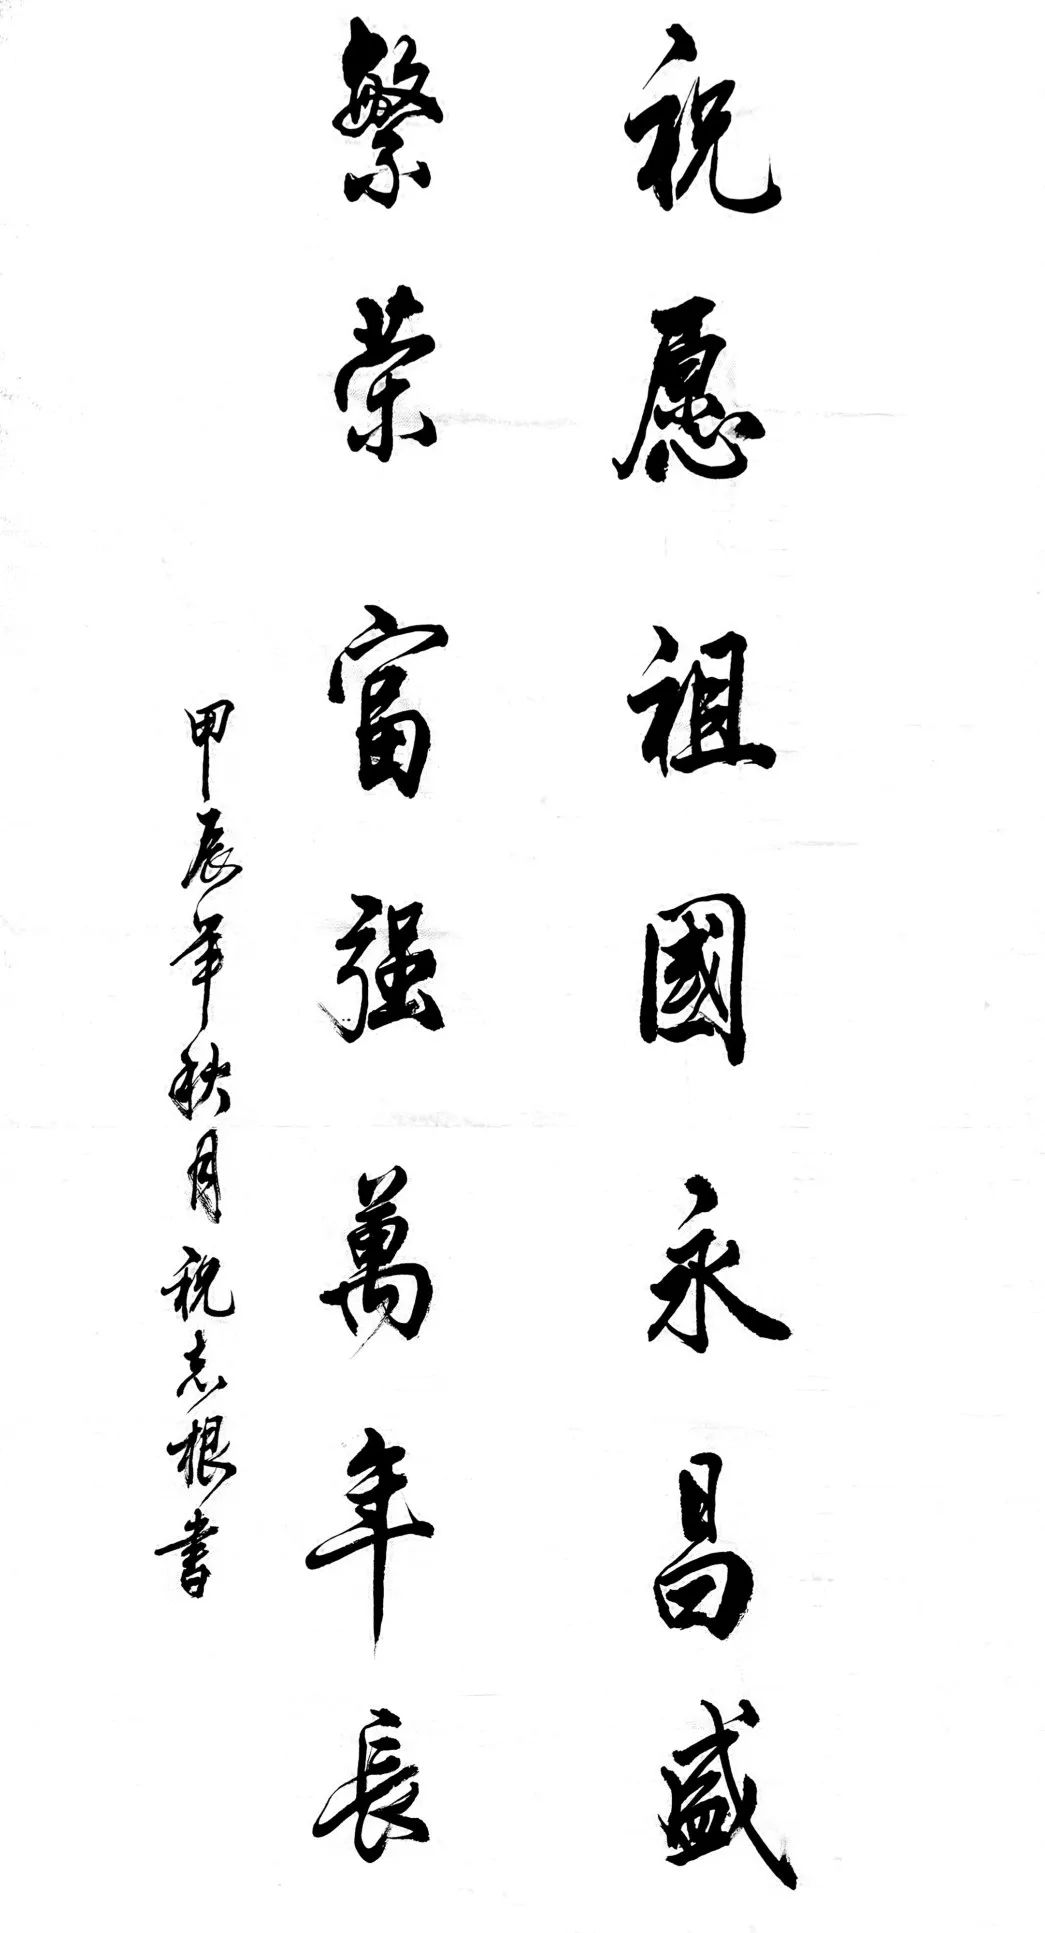 祝愿祖國永昌盛
繁荣富强萬年長
甲辰年秋月祝志根書